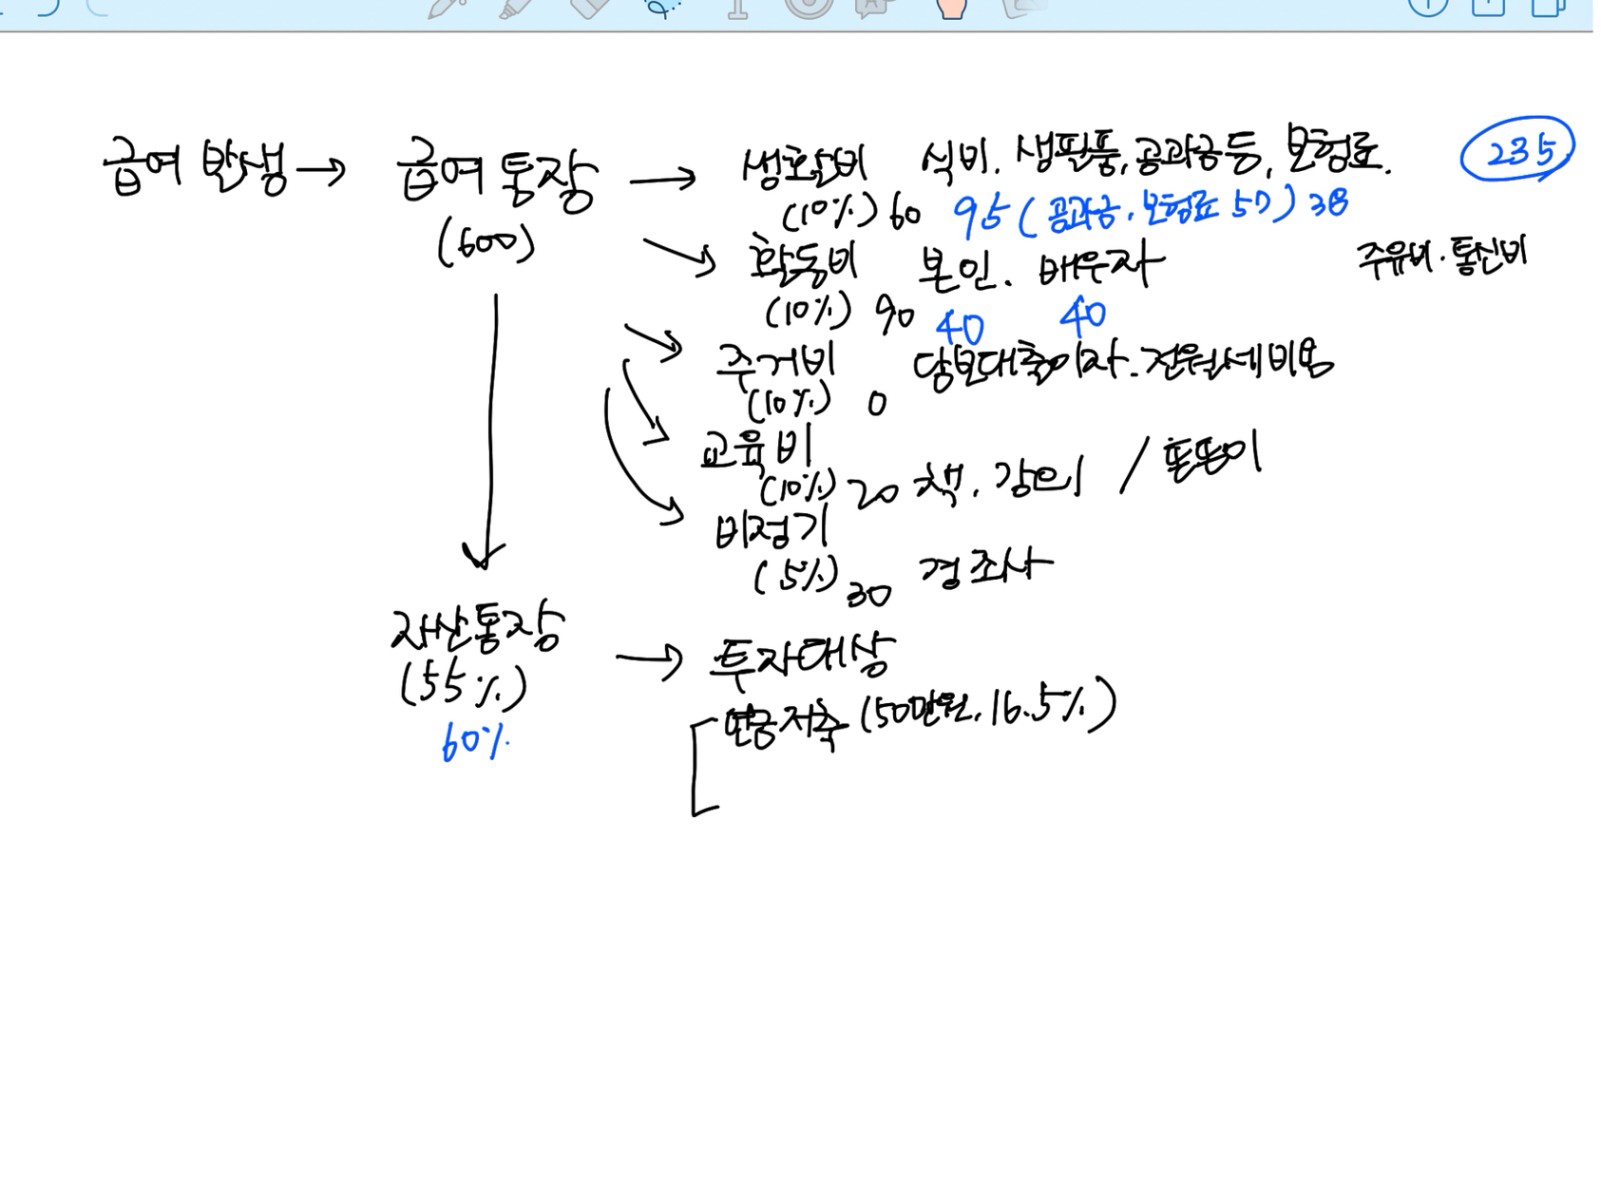 급여 발생 → 급여 통장 → 생활비 식비. 생필품, 공과금 등, 보험료. 235
(600) (10%) 60 95 (공과금, 보험료 57) 38
활동비 본인. 배우자 주유비. 통신비
(10%) 90 40 40
주거비 담보대출이자. 전월세비용
(10%) 0
교육비
(10%) 20 책. 강의 / 튼튼이
비정기
(5%) 30 경조사
자산통장 → 투자대상
(55%) 연금저축 (50만원, 16.5%)
60%